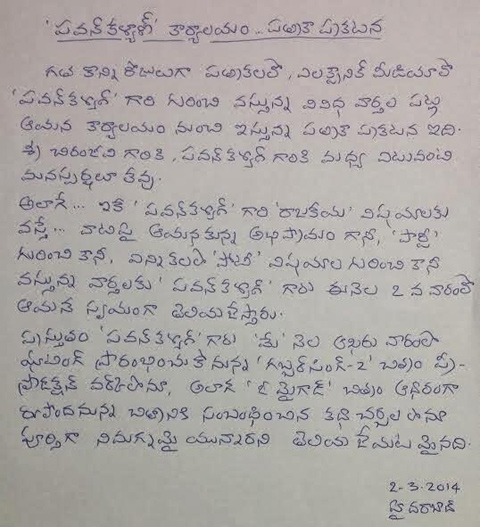 'పవన్ కళ్యాణ్' కార్యాలయం.. పత్రికా ప్రకటన
గత కొన్ని రోజులుగా పత్రికలలో, ఎలక్ట్రానిక్ మీడియాలో
'పవన్ కళ్యాణ్' గారి గురించి వస్తున్న వివిధ వార్తల పట్ల
ఆయన కార్యాలయం నుంచి ఇస్తున్న పత్రికా ప్రకటన ఇది.
శ్రీ చిరంజీవి గారికి, పవన్ కళ్యాణ్ గారికి మధ్య ఎటువంటి
మనస్పర్థలూ లేవు.
అలాగే... ఇక 'పవన్ కళ్యాణ్' గారి 'రాజకీయ' విషయాలకు
వస్తే... వాటిపై ఆయనకున్న అభిప్రాయం గానీ, 'పార్టీ'
గురించి కానీ, ఎన్నికలలో 'పోటీ' విషయాల గురించి కానీ
వస్తున్న వార్తలకు 'పవన్ కళ్యాణ్' గారు ఈనెల 2 వ వారంలో
ఆయన స్వయంగా తెలియచేస్తారు.
ప్రస్తుతం 'పవన్ కళ్యాణ్' గారు 'మే' నెల ఆఖరు వారంలో
షూటింగ్ ప్రారంభించుకోనున్న 'గబ్బర్ సింగ్-2' చిత్రం ప్రీ-
ప్రొడక్షన్ వర్క్ లోనూ, అలాగే 'ఓ మైగాడ్' చిత్రం ఆధారంగా
రూపొందనున్న చిత్రానికి సంబంధించిన కథా చర్చల లోనూ
పూర్తిగా నిమగ్నమై యున్నారని తెలియ చేయటమైనది.
2-3-2014
హైదరాబాద్